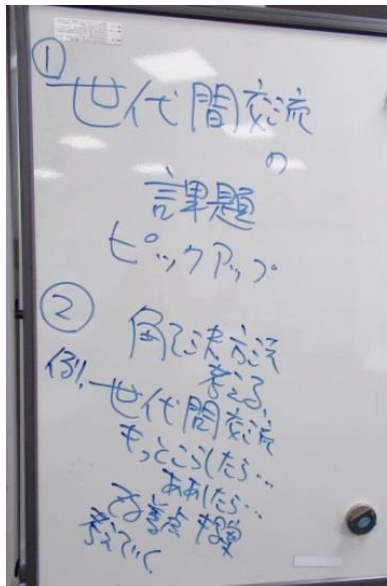 ①
世代間交流
の
課題
ピックアップ
②
解決方法
考える、
例、世代間交流
もっとこうしたら…
ああしたら…
改善点
考えていく